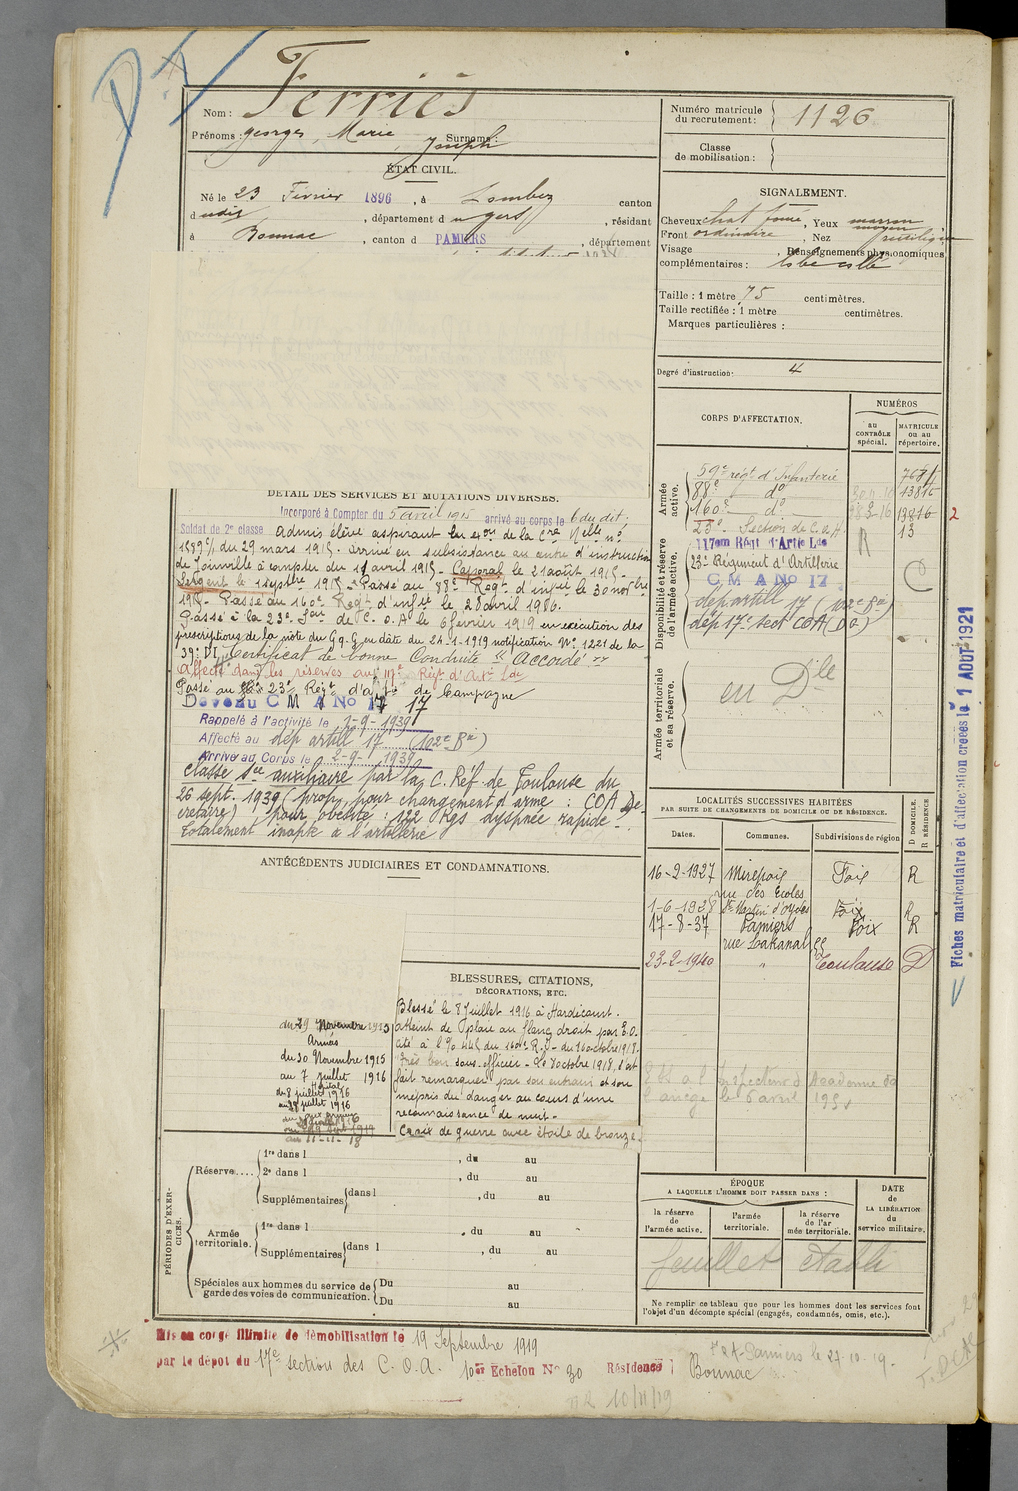 Ferriès
Nom :
Prénoms : Georges, Marie, Joseph
Surnoms :
ÉTAT CIVIL.
Né le 23 Février 1896, à Lombez canton
dudit, département du gers, résidant
à Bonnac, canton d PAMIERS, département
DÉTAIL DES SERVICES ET MUTATIONS DIVERSES.
Incorporé à Compter du 5 avril 1915 arrivé au corps le 6 du dit,
Soldat de 2e classe admis élève aspirant
du 29 mars 1915. Arrivé en subsistance au centre d'instruction
de Joinville à compter du 11 avril 1915. Caporal le 21 août 1915.
Sergent le 1er 1915. Passé au 88e Régt d'infie le 30 nobre
1915. Passé au 160e Régt d'infie le 28 avril 1916.
Passé à la 23e Son de C.O.A le 6 février 1919 en exécution des
prescriptions de la note du G.Q.G en date du 24-1-1919 notification No 1221 de la
39e DI. Certificat de bonne Conduite "Accordé"
Affecté dans les réserves au 117e Régt d'Artie Lde
Passé au 23e Régt d'artie de Campagne
Devenu C M A No 17 17
Rappelé à l'activité le 2-9-1939
Affecté au dép artill 17 (102e Bie)
Arrivé au Corps le 2-9-1939
Classé Sce auxiliaire par la C. Réf. de Toulouse du
26 sept. 1939 (prop. pour changement d'arme : COA Se
crétaire) pour obésité : 122 kgs dyspnée rapide -
Totalement inapte à l'artillerie
ANTÉCÉDENTS JUDICIAIRES ET CONDAMNATIONS.
BLESSURES, CITATIONS,
DÉCORATIONS, ETC.
Blessé le 8 Juillet 1916 à Hardicourt.
atteint de plaie au flanc droit par E.O.
cité à l'O. 445 du 160e R.I. du 16 octobre 1918.
"Très bon sous-officier. Le 7 octobre 1918, s'est
fait remarquer par son entrain et son
mépris du danger au cours d'une
reconnaissance de nuit.
Croix de guerre avec étoile de bronze.
du 29 Novembre 1915
Armées
du 30 Novembre 1915
au 7 juillet 1916
Hôpital
du 8 juillet 1916
au juillet 1916
au 11-11-18
PÉRIODES D'EXERCICES.
Réserve....
1re dans l , du au
2e dans l , du au
Supplémentaires dans l , du au
Armée territoriale.
1re dans l , du au
Supplémentaires dans l , du au
Spéciales aux hommes du service de garde des voies de communication.
Du au
Du au
Mis en congé illimité de démobilisation le 19 Septembre 1919
par le dépot du 17e section des C.O.A. 10er Echelon No 30 Résidence Bonnac
Pamiers le 27.10.19.
10/11/19
Numéro matricule
du recrutement : 1126
Classe
de mobilisation :
SIGNALEMENT.
Cheveux chat foncé, Yeux marron
Front ordinaire, Nez moyen
Visage , Renseignements physionomiques
complémentaires :
Taille : 1 mètre 75 centimètres.
Taille rectifiée : 1 mètre centimètres.
Marques particulières :
Degré d'instruction : 4
CORPS D'AFFECTATION.
NUMÉROS
au CONTRÔLE spécial.
MATRICULE ou au répertoire.
Armée active.
59e régt d'Infanterie
88e do 13816
160e do 13816
23e Section de C.O.A. 13
Disponibilité et réserve de l'armée active.
117em Régt d'Artie Lde
23e Régiment d'Artillerie
C M A No 17
dép artill 17 (102e Bie)
dép 17e sect COA (Do)
Armée territoriale et sa réserve.
en Dle
R
2
LOCALITÉS SUCCESSIVES HABITÉES
PAR SUITE DE CHANGEMENTS DE DOMICILE OU DE RÉSIDENCE.
Dates.
Communes.
Subdivisions de région
D DOMICILE.
R RÉSIDENCE
16-2-1927 Mirepoix Foix R
rue des Ecoles
1-6-1928 St Martin d'Oydes Foix R
17-8-37 Pamiers Foix R
rue Lakanal
23-2-1940 " Toulouse D
Inspecteur d'Académie de
l'Ariège le 6 avril
ÉPOQUE
A LAQUELLE L'HOMME DOIT PASSER DANS :
la réserve de l'armée active.
l'armée territoriale.
la réserve de l'armée territoriale.
DATE de LA LIBÉRATION du service militaire.
feuillet établi
Ne remplir ce tableau que pour les hommes dont les services font
l'objet d'un décompte spécial (engagés, condamnés, omis, etc.).
Fiches matriculaire et d'affectation creées le 1 AOUT 1921